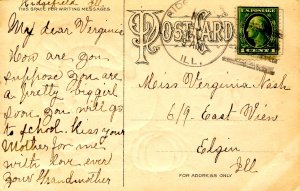 Ridgefield Ill
THIS SPACE FOR WRITING MESSAGES
My dear Verginia
How are you I
suppose you are
a pretty bigger
soon you will go
to school. Kiss your
Mother for me
with love ever
your Grandmother
POSTCARD
ILL.
U.S. POSTAGE
1 CENT 1
Miss Verginia Nash
619- East View
Elgin
Ill
FOR ADDRESS ONLY